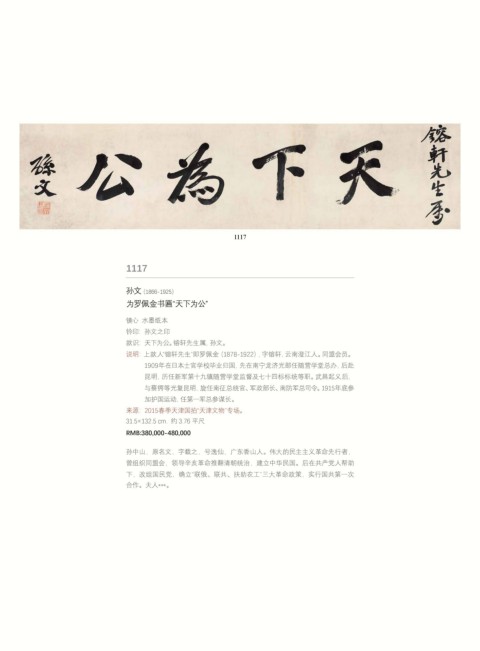 鎔軒先生屬
天下為公
孫文
1117
1117
孙文 (1866-1925)
为罗佩金书匾“天下为公”
镜心 水墨纸本
钤印: 孙文之印
款识: 天下为公。镕轩先生属, 孙文。
说明: 上款人“镕轩先生”即罗佩金 (1878-1922), 字镕轩, 云南澄江人。同盟会员。
1909年在日本士官学校毕业归国, 先在南宁龙济光部任随营学堂总办, 后赴
昆明, 历任新军第十九镇随营学堂监督及七十四标标统等职。武昌起义后,
与蔡锷等光复昆明, 旋任南征总统官、军政部长、南防军总司令。1915年底参
加护国运动, 任第一军总参谋长。
来源: 2015春季天津国拍“天津文物”专场。
31.5×132.5 cm 约3.76 平尺
RMB:380,000-480,000
孙中山, 原名文, 字载之, 号逸仙, 广东香山人。伟大的民主主义革命先行者,
曾组织同盟会, 领导辛亥革命推翻清朝统治, 建立中华民国。后在共产党人帮助
下, 改组国民党, 确立“联俄、联共、扶助农工”三大革命政策, 实行国共第一次
合作。夫人